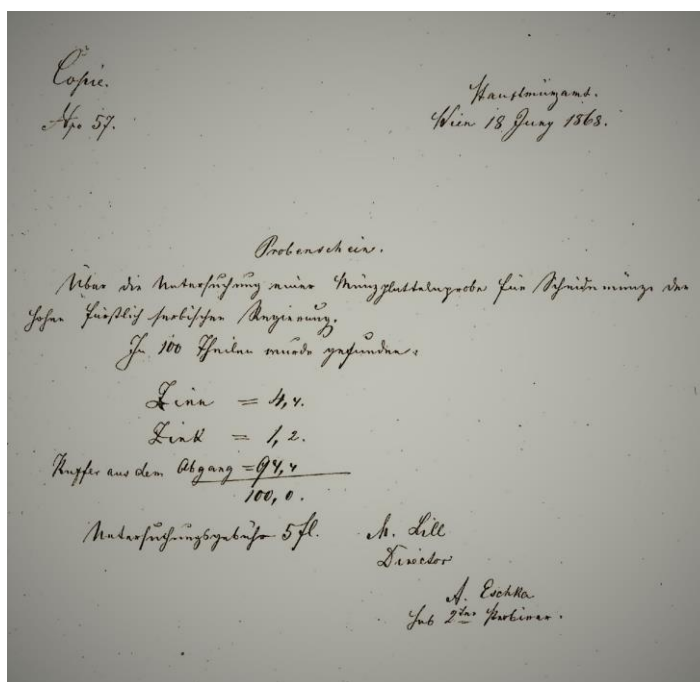 Copie.
Hauptmünzamt.
No 57.
Wien 18 Juny 1868.
Probenschein.
Über die Untersuchung einer Münzplattenprobe für Scheidemünze der
hohen fürstlich serbischen Regierung.
In 100 Theilen wurde gefunden:
Zinn = 4,4.
Zink = 1,2.
Kupfer aus dem Abgang = 94,4
100,0.
Untersuchungsgebühr 5 fl. M. Lill
Director
A. Eschka
2ter Probirer.